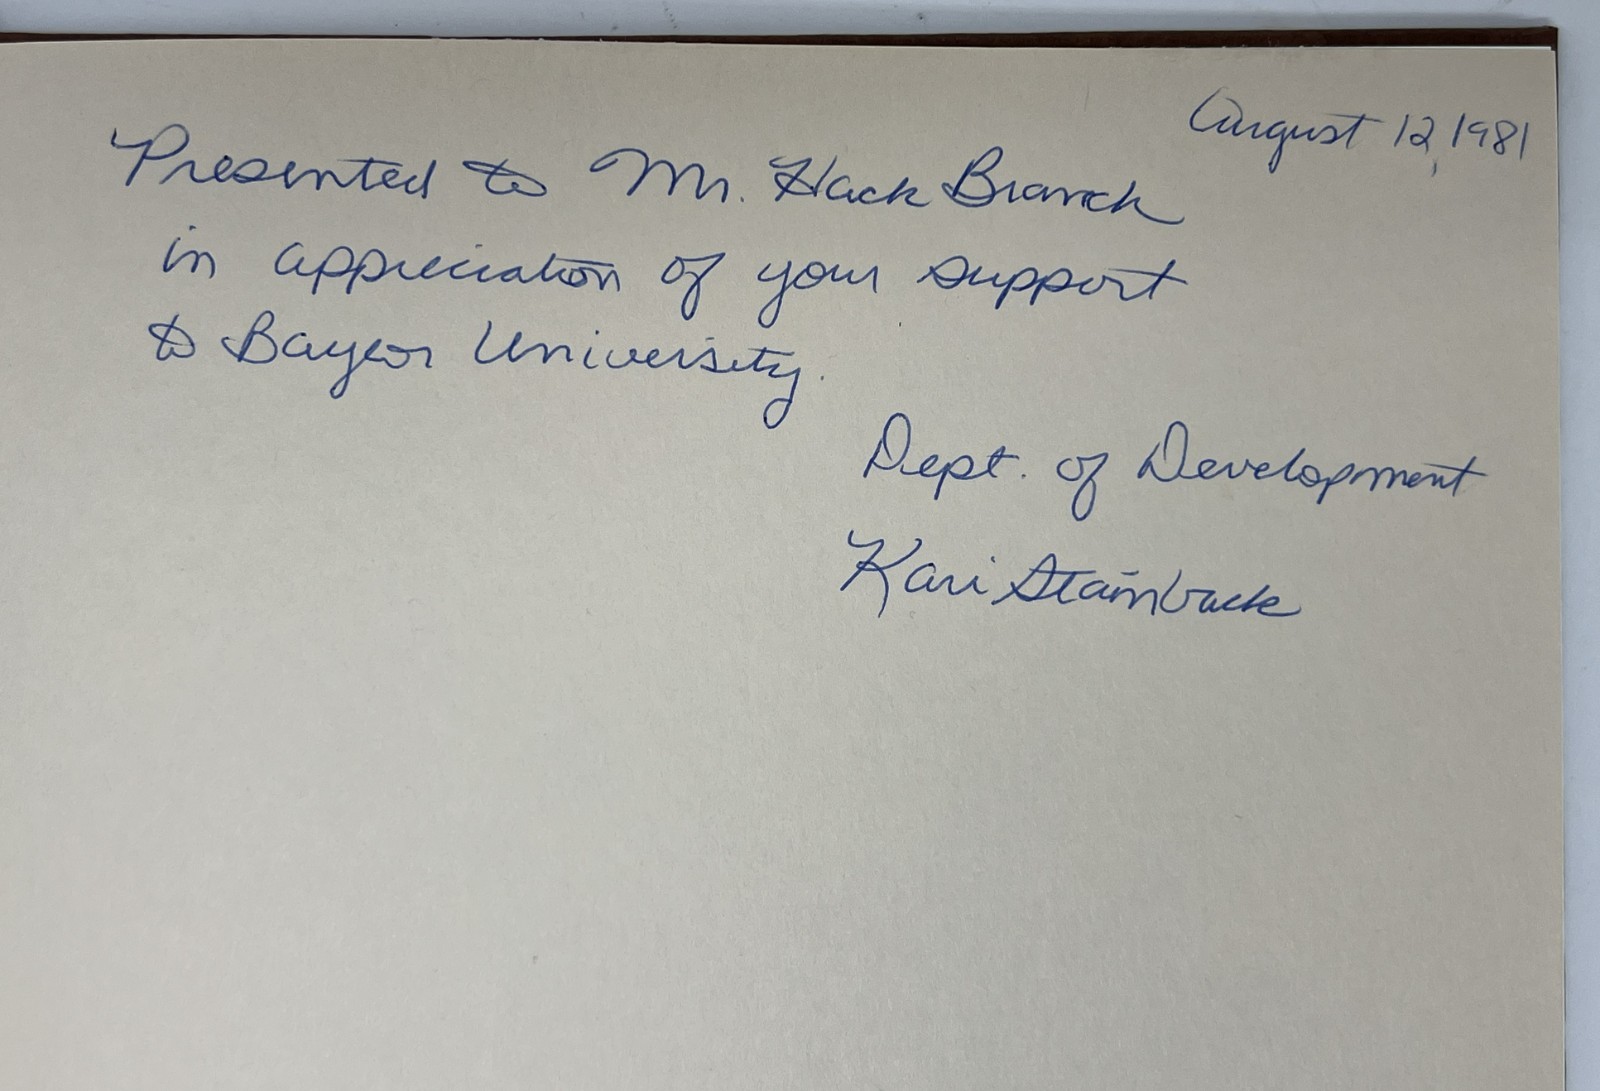 August 12, 1981
Presented to Mr. Hack Branch
in appreciation of your support
to Baylor University.
Dept. of Development
Kari Stainback